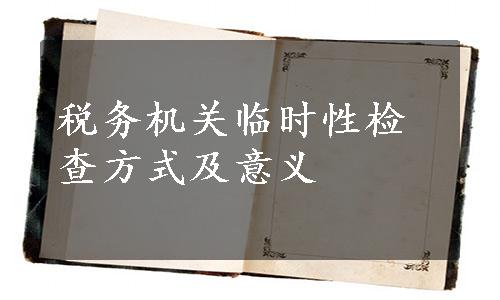 税务机关临时性检
查方式及意义